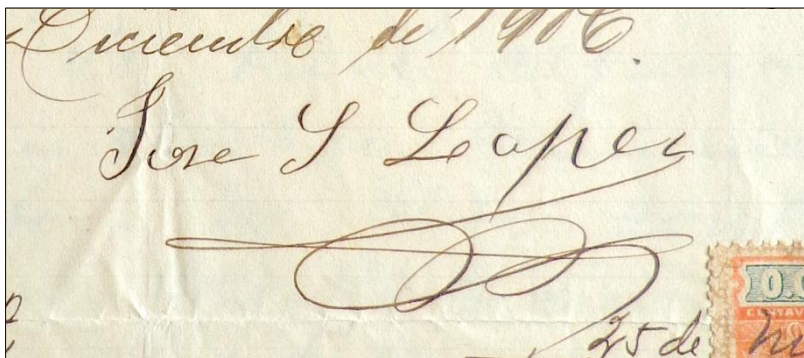 Diciembre de 1906.
Jose S Lopez
25 de
0.
CENTAV